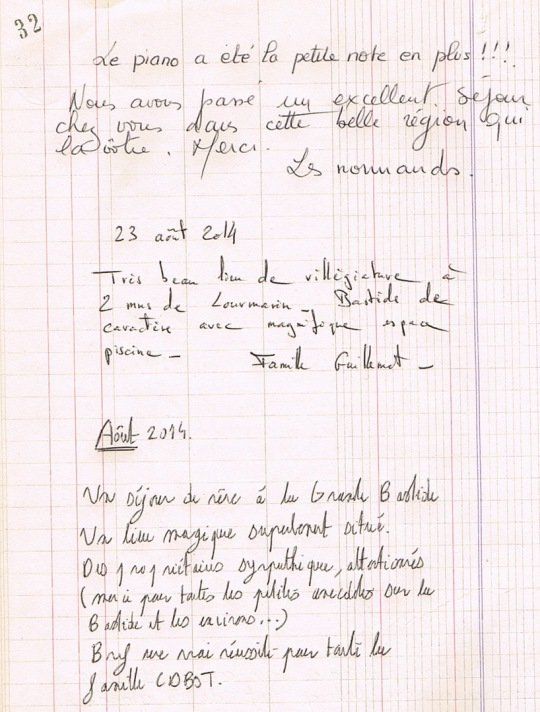 32
Le piano a été la petite note en plus!!!
Nous avons passé un excellent séjour
chez vous dans cette belle région qui
la vôtre. Merci.
Les normands.
23 août 2014
Très beau lieu de villégiature à
2 mns de Lourmarin_ Bastide de
caractère avec magnifique espace
piscine_
Famille Guillemot_
Août 2014.
Un séjour de rêve à la Grande Bastide
Un lieu magique superbement situé.
Des propriétaires sympathique, attentionnés
(merci pour toutes les petites anecdotes sur la
Bastide et les environs...)
Bref une vrai réussite pour toute la
famille